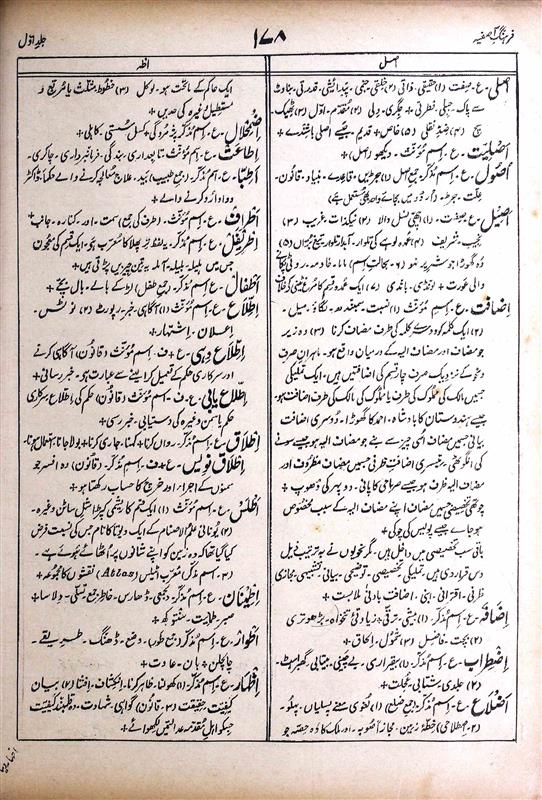 فرہنگِ آصفیہ
۱۷۸
جلد اوّل
اصل
اظہ
اصلی۔ ع۔ صِفت (۱) حقیقی۔ ذاتی (۲) خلقی۔ جنمی۔ پیدایشی۔ قدرتی۔ بناوٹ
سے پاک۔ جبلی۔ فطرتی + جگری۔ دلی (۳) مُقدّم۔ اوّل (۴) ٹھیک۔
سچ (۴) ضدِ نقلی (۵) خاص + قدیم۔ جیسے اصلی باشندے +
اصلیّت۔ ع۔ اِسم مُؤنّث۔ دیکھو (اصل)
اُصُول۔ ع۔ اِسم مُذکّر۔ جمع اصل (۱) جڑیں (۲) قاعدے۔ بنیاد۔ قانون۔
علّت۔ جڑ۔
اَصِیل۔ ع۔ صِفت۔ (۱) اچھی نسل والا (۲) نیکذات۔ غریب (۳)
نجیب۔ شریف (۴) عمدہ لوہے کی تلوار۔
وُہ گھوڑا جو شریر نہو (۶) بحالتِ اسم) ماما۔ خادمہ۔ روٹی پکانے
والی عورت + لونڈی۔ باندی (۷)
اِضافت۔ ع۔ اِسم مُؤنّث (۱) نسبت۔ سمبندھ۔ لگاؤ۔ میل۔
(۲) ایک کلمہ کو دوسرے کلمہ کی طرف مضاف کرنا (۳) وہ زیر
جو مضاف اور مضاف الیہ کے درمیان واقع ہو۔ ماہرانِ صرف
و نحو کے نزدیک صرف چار قسم کی اضافتیں ہیں۔ ایک تملیکی
جسمیں مالک کی مملوک کی طرف یا مملوک کی مالک کی طرف اضافت ہو۔
جیسے ہندوستان کا بادشاہ۔ احمد کا گھوڑا۔ دُوسری اضافت
بیانی جسمیں مضاف اُسی چیز سے بنے جو مضاف الیہ ہو جیسے سونے
کی انگوٹھی۔ تیسری اضافتِ ظرفی جسمیں مضاف مظروف اور
مضاف الیہ ظرف ہو جیسے صراحی کا پانی۔ دوپہر کی دُھوپ +
چوتھی تخصیصی جسمیں مضاف اپنے مضاف الیہ کے سبب مخصوص
ہو جاے جیسے پولیس کی چوکی +
باقی سب تخصیصی میں داخل ہیں۔ مگر نحویوں نے بہ ترتیب ذیل
دس قرار دی ہیں۔ تملیکی۔ تخصیصی۔ توضیحی۔ بیانی۔ تشبیہی۔ مجازی
ظرفی۔ اقترانی۔ ابنی۔ اضافت بادنیٰ ملابست +
اِضافہ۔ ع۔ اِسم مُذکّر۔ (۱) بیشی۔ ترقی + زیادتیِ تنخواہ۔ بڑھوتری
(۲) بچت۔ فاضل (۳) شمُول۔ اِلحاق +
اِضطراب۔ ع۔ اِسم مُذکّر۔ (۱) بیقراری۔ بے چینی۔ بیتابی۔ گھبراہٹ۔
(۲) جلدی۔ شتابی۔ عُجلت +
اَضلاع۔ ع۔ اِسم مُذکّر (جمع ضلع) (۱) لُغوی معنے پسلیاں۔ پہلو۔
(۲۔ اِصطلاحی) خِطّۂ زمین۔ مجازاً صُوبہ۔ اور ملک کا وہ حِصّہ جو
ایک حاکم کے ماتحت ہو۔ لوکل (۳) خطوطِ مثلث یا مُربّع و
مستطیل وغیرہ کی حدیں +
اِضمحلال۔ ع۔ اِسم مُذکّر۔ پژمُردگی + کسل سُستی۔ کاہلی +
اِطاعت۔ ع۔ اِسم مُؤنّث۔ تابعداری۔ بندگی۔ فرمانبرداری۔ چاکری۔
اَطِبّا۔ ع۔ اِسم مُذکّر۔ (جمع طبیب) بَید۔ علاج معالجہ کرنے والے حکما۔ ڈاکٹر
و وادارو کرنے والے +
اَطراف۔ ع۔ اِسم مُؤنّث۔ (طرف کی جمع) سمت۔ اور۔ کنارہ۔ جانب +
اِطریفل۔ ع۔ اِسم مُذکّر۔ یہ لفظ ترپھلا کا معرّب ہے۔ ایک قسم کی معجون
جس میں ہلیلہ۔ بلیلہ۔ آملہ۔ یہ تین چیزیں پڑتی ہیں +
اَطفال۔ ع۔ اِسم مُذکّر۔ (جمع طفل) لڑکے بالے۔ بال بچّے +
اِطّلاع۔ ع۔ اِسم مُؤنّث (۱) آگاہی۔ خبر۔ رپورٹ (۲) نوٹس۔
اِعلان۔ اِشتہار +
اِطّلاع دہی۔ ع + ف۔ اِسم مُؤنّث (قانون) آگاہی کرنے
اور سرکاری حکم کے تعمیل کرا لینے سے عبارت ہے۔ خبر رسانی +
اِطّلاع یابی۔ ع + ف۔ اِسم مُؤنّث (قانون) حکم کی اِطّلاع سرکاری
حکم یا سمن وغیرہ کی دستیابی۔ خبر رسی +
اِطلاق۔ ع۔ اِسم مُذکّر۔ رواں کرنا + کہنا۔ جاری کرنا + بولا جانا۔ استعمال ہونا۔
اِطلاق نویس۔ ع + ف۔ اِسم مُذکّر۔ (قانون) وہ افسر جو
سمنوں کے اجراء اور خرچ کا حساب رکھتا ہو +
اَطلس۔ ع۔ اِسم مُذکّر۔ (۱) ایک قسم کا ریشمی کپڑا مثلِ ساٹن وغیرہ۔
(۲) یُونانی علم الاصنام کے ایک دیوتا کا نام جس کی نسبت فرض
کیا گیا تھا کہ وہ زمین کو اپنے شانوں پر اُٹھائے ہُوئے ہے۔
(۳۔ اِسم مُذکّر) مُعرّب اٹلیس (Atlas) نقشوں کا مجمُوعہ +
اِطمینان۔ ع۔ اِسم مُذکّر۔ دِلجمعی۔ ڈھارس۔ خاطر جمع۔ تسلّی۔ دِلاسا +
صبر۔ طمانیت۔ سنتوکھ +
اَطوار۔ ع۔ اِسم مُذکّر (جمع طور)۔ وضع۔ ڈھنگ۔ طریقے۔
چالچلن + بان۔ عادت +
اِظہار۔ ع۔ اِسم مُذکّر۔ (۱) کھولنا۔ ظاہر کرنا۔ اِنکشاف۔ افشا (۲) بیان
کیفیت۔ حقیقت (۳۔ قانون) گواہی۔ شہادت۔ وہ قلمبند کیفیّت
جسکو اہلِ مُقدمہ عدالت میں لکھوائے +